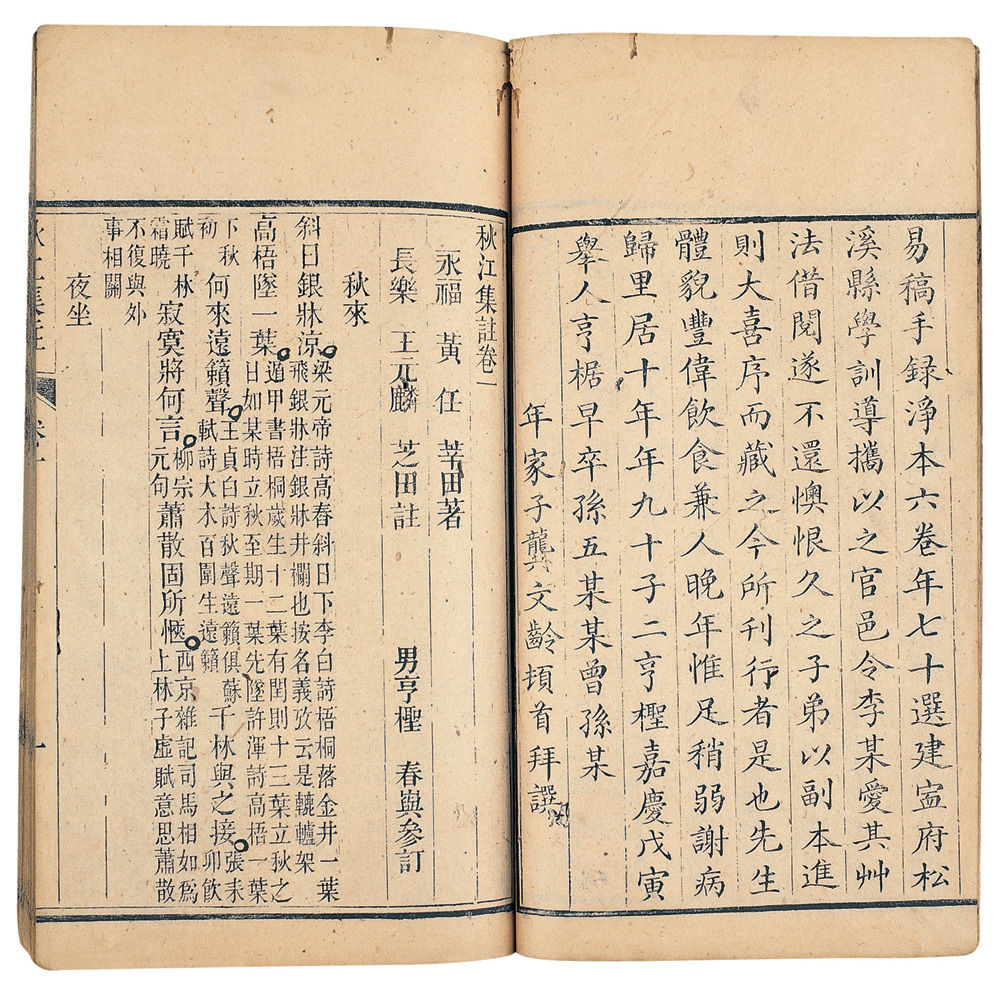 易稿手録淨本六卷年七十選建寍府松
溪縣學訓導攜以之官邑令李某愛其艸
法借閱遂不還懊恨久之子弟以副本進
則大喜序而藏之今所刊行者是也先生
體貌豐偉飲食兼人晚年惟足稍弱謝病
歸里居十年年九十子二亨檉嘉慶戊寅
舉人亨椐早卒孫五某某曾孫某
年家子龔文齡頓首拜譔
秋江集註卷一
永福 黃任 莘田著
長樂 王元麟 芝田註 男亨檉 春輿參訂
秋來
斜日銀牀涼梁元帝詩高春斜日下李白詩梧桐落金井一葉飛銀牀注銀牀井欄也按名義攷云是轆轤架
高梧墜一葉遁甲書梧桐歲生十二葉有閏則十三葉立秋之日如某時立秋至期一葉先墜許渾詩高梧一葉
下秋初何來遠籟聲王貞白詩秋聲遠籟俱蘇軾詩大木百圍生遠籟千林與之接張耒卯飲
賦千林霜曉寂寞將何言柳宗元句蕭散固所愜西京雜記司馬相如爲上林子虛賦意思蕭散
不復與外事相關
夜坐